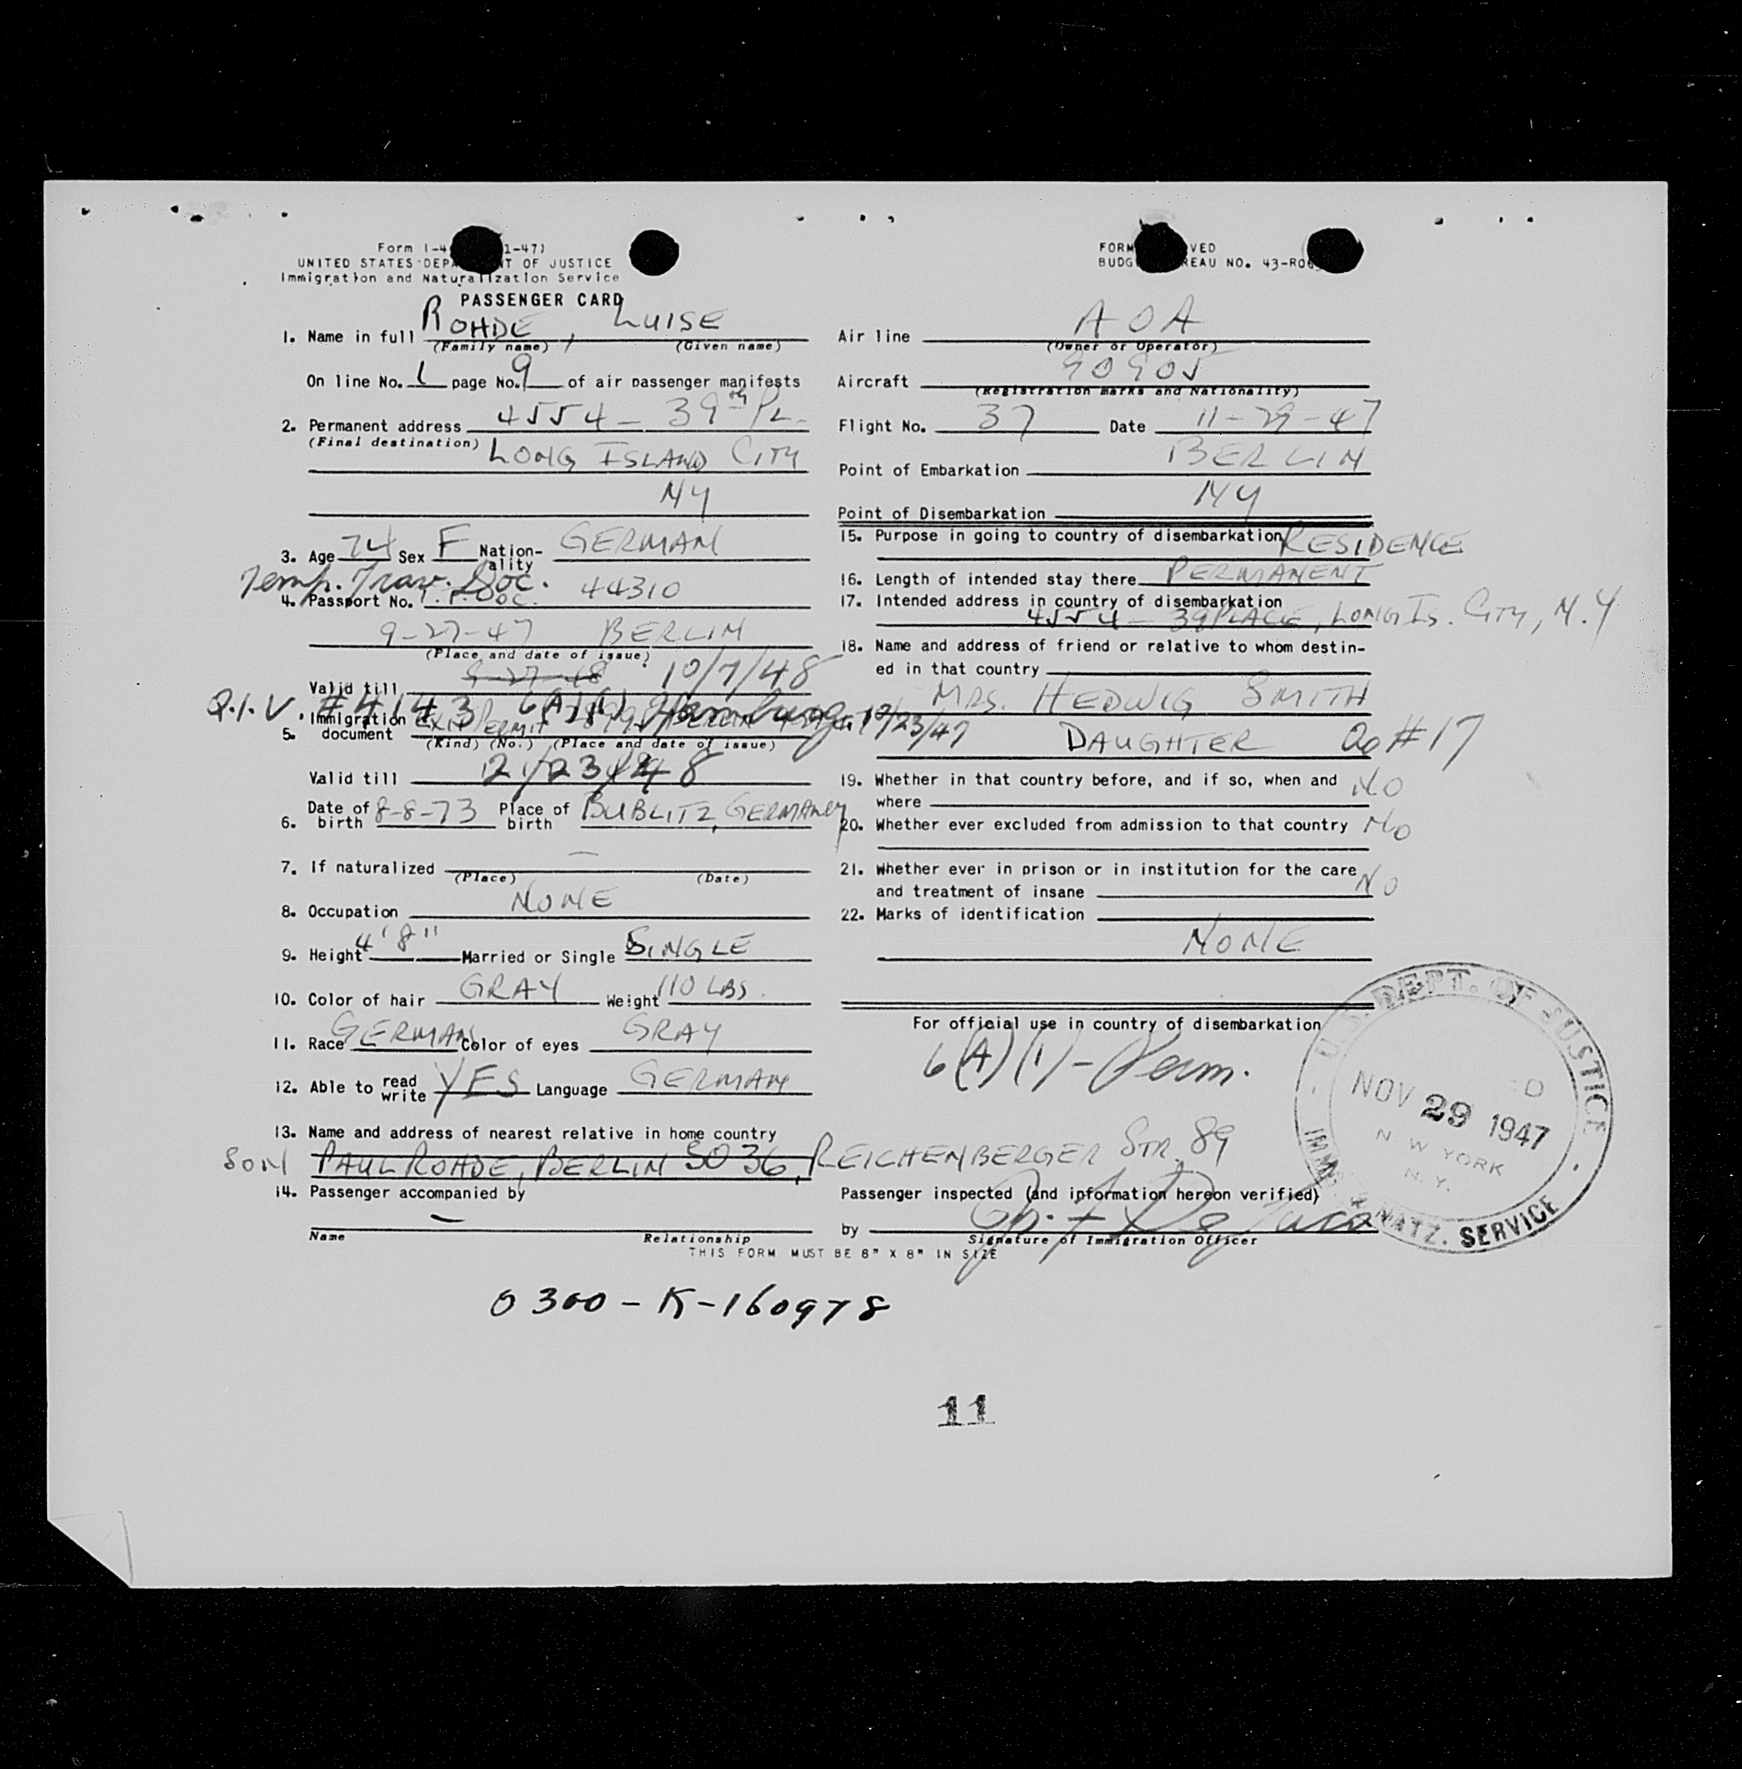 Form I-4 1-47)
UNITED STATES DEPA T OF JUSTICE
Immigration and Naturalization Service
PASSENGER CARD
FORM VED
BUDG REAU NO. 43-R0
1. Name in full ROHDE, LUISE
(Family name) (Given name)
On line No. 1 page No. 9 of air passenger manifests
2. Permanent address 4554 - 39th PL.
(Final destination) LONG ISLAND CITY
NY
3. Age 74 Sex F Nation-ality GERMAN
Temp. Trav. Doc.
4. Passport No. T.T. DOC. 44310
9-27-47 BERLIN
(Place and date of issue)
Valid till 9-27-48 10/7/48
Q.I.V. #4143 6(A)(1) Hamburg 10/23/47
5. Immigration document EXIT PERMIT
(Kind) (No.) (Place and date of issue)
Valid till 2/23/48
6. Date of birth 8-8-73 Place of birth BUBLITZ, GERMANY
7. If naturalized —
(Place) (Date)
8. Occupation NONE
9. Height 4'8" Married or Single SINGLE
10. Color of hair GRAY Weight 110 LBS.
11. Race GERMAN Color of eyes GRAY
12. Able to read write YES Language GERMAN
13. Name and address of nearest relative in home country
SON PAUL ROHDE, BERLIN SO 36, REICHENBERGER STR. 89
14. Passenger accompanied by
—
Name Relationship
Air line AOA
(Owner or Operator)
Aircraft 90905
(Registration marks and Nationality)
Flight No. 37 Date 11-29-47
Point of Embarkation BERLIN
Point of Disembarkation NY
15. Purpose in going to country of disembarkation RESIDENCE
16. Length of intended stay there PERMANENT
17. Intended address in country of disembarkation
4554 - 39 PLACE, LONG IS. CITY, N.Y
18. Name and address of friend or relative to whom destin-
ed in that country
MRS. HEDWIG SMITH
DAUGHTER as #17
19. Whether in that country before, and if so, when and
where NO
20. Whether ever excluded from admission to that country NO
21. Whether ever in prison or in institution for the care
and treatment of insane NO
22. Marks of identification
NONE
For official use in country of disembarkation
6(A)(1) - Perm.
U.S. DEPT. OF JUSTICE
NOV 29 1947
N W YORK
N.Y.
IMM NATZ. SERVICE
Passenger inspected (and information hereon verified)
by
Signature of Immigration Officer
THIS FORM MUST BE 8" X 8" IN SIZE
0300-K-160978
11